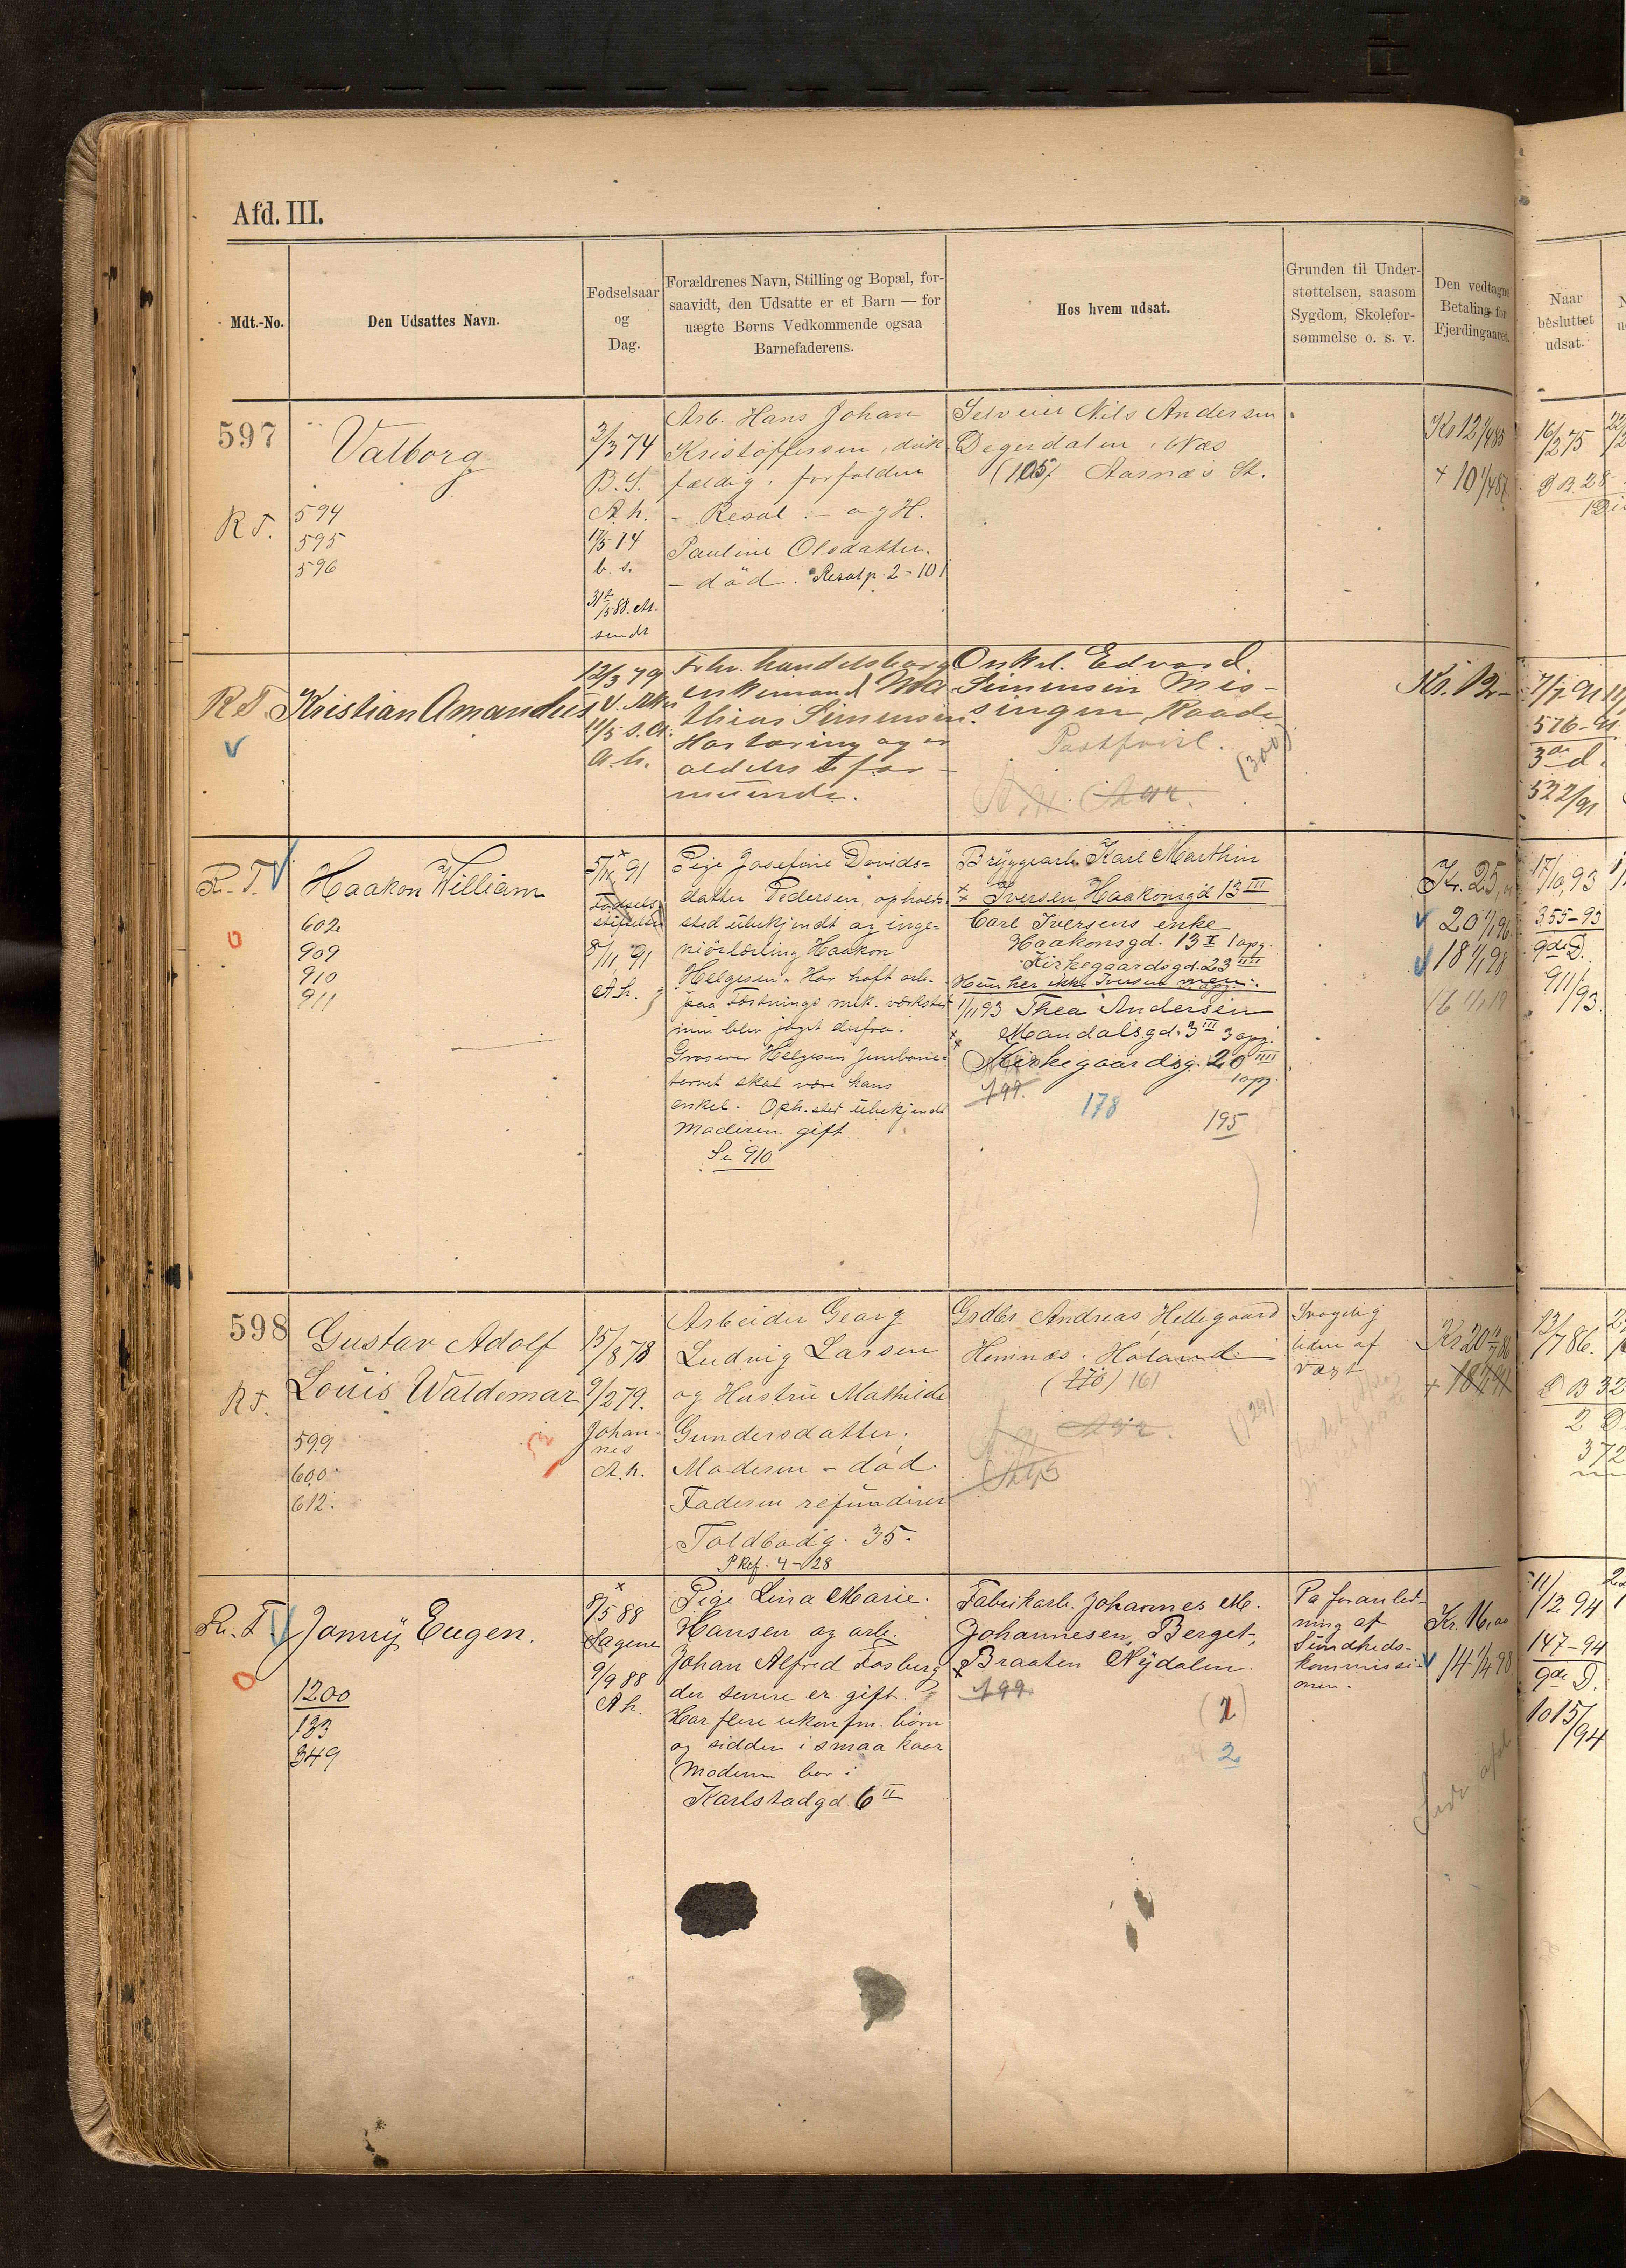 Afd. III.
Mdt.-No.
Den Udsattes Navn.
Fødselsaar
og
Dag.
Forældrenes Navn, Stilling og Bopæl, for-
saavidt, den Udsatte er et Barn — for
uægte Børns Vedkommende ogsaa
Barnefaderens.
Hos hvem udsat.
Grunden til Under-
støttelsen, saasom
Sygdom, Skolefor-
sømmelse o. s. v.
Den vedtagne
Betaling for
Fjerdingaaret.
Naar
besluttet
udsat.
597
Valborg
R T.
594
595
596
2/3 74
B. S.
A. h.
17/5 14
b. s.
Arb. Hans Johan
Kristoffersen, drik
fældig, forfalden
- Resol. - og H.
Pauline Olsdatter.
- død. Resolp. 2-101
Selveier Nils Andersen
Degerdalen, Næs
(105) Aarnæs St.
Kr 12 1/4 85
+ 10 1/4 87
16/2 75
D B. 28
R T.
Kristian Amandus
12/3 79
11/5 s. A.
A. h.
Fhv. handelsborg
enkemand Ma
thias Simensen.
Har tæring og er
aldeles ufor-
muende.
Onkel Edvard
Simensen Mis-
singen, Raade
Postfviel.
(300)
Kr. 12-
7/7 91
576-91
3die d.
522/91
R. T.
Haakon William
602
909
910
911
5/11 91
Fødsels-
stiftelsen
8/11 91
A. h.
Pige Josefine Davids-
datter Pedersen, opholds-
sted ubekjendt og inge-
niörlærling Haakon
Helgesen. Har haft arb.
paa Fæstnings mek. værksted
men blev jaget derfra.
Grosserer Helgesen Jernbane-
torvet skal være hans
onkel. Oph. sted ubekjendt
Moderen gift.
Se 910
Bryggearb. Karl Marthin
Iversen, Haakonsgd 13 III
Carl Iversens enke
Haakonsgd. 13 I 1 opg.
Kirkegaardsgd. 23 IIII
1/11 93 Thea Andersen
Mandalsgd. 3 III 3 opg.
Kirkegaardsg. 20 IIII
1 opg.
199.
178
195
Kr. 25,00
20 1/1 96
18 1/1 98
17/10 93
355-93
9de D.
911/93.
598
Gustav Adolf
Louis Waldemar
R T.
599
600
612.
15/8 78
9/2 79.
Johan-
nes
A. h.
Arbeider Georg
Ludvig Larsen
og Hustru Mathilde
Gundersdatter.
Moderen - död.
Faderen refunderer
Toldbodg. 35.
P Ref. 4-128
Grdbr Andreas Hellegaard
Hemnæs. Höland
(170) 161
(129)
Svagelig
liden af
Vægt
Kr 20
+ 18
13/7 86.
D B 32
2 D
372
R. T.
Jonny Eugen.
1200
133
349
8/5 88
Sagene
9/9 88
A h.
Pige Lina Marie
Hansen og arb.
Johan Alfred Fosberg
der senere er gift.
Har flere ukonfm. börn
og sidder i smaa kaar
Moderen bor i
Karlstadgd. 6 II
Fabrikarb. Johannes M.
Johannesen, Berget,
Braaten Nydalen.
199
(2)
2
Pa foranled-
ning af
Sundheds-
kommissi-
onen.
Kr. 16,00
14 1/4 98
11/12 94
147-94
9de D.
1015/94